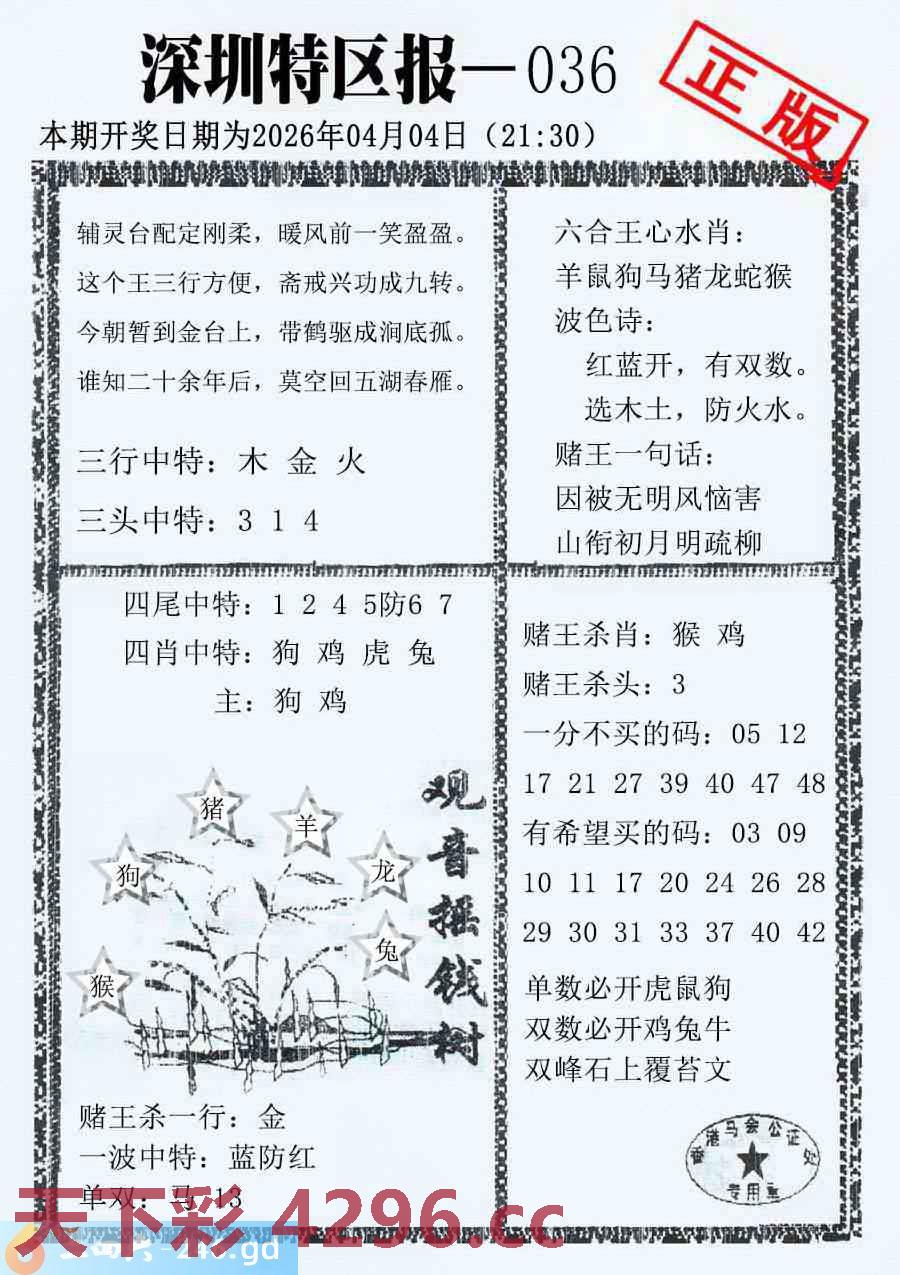 深圳特区报－036
正版
本期开奖日期为2026年04月04日（21:30）
辅灵台配定刚柔，暖风前一笑盈盈。
这个王三行方便，斋戒兴功成九转。
今朝暂到金台上，带鹤驱成涧底孤。
谁知二十余年后，莫空回五湖春雁。
三行中特：木 金 火
三头中特：3 1 4
六合王心水肖：
羊鼠狗马猪龙蛇猴
波色诗：
红蓝开，有双数。
选木土，防火水。
赌王一句话：
因被无明风恼害
山衔初月明疏柳
四尾中特：1 2 4 5防6 7
四肖中特：狗 鸡 虎 兔
主：狗 鸡
猪
羊
狗
龙
兔
猴
观音摇钱树
赌王杀一行：金
一波中特：蓝防红
单双：马 13
赌王杀肖：猴 鸡
赌王杀头：3
一分不买的码：05 12
17 21 27 39 40 47 48
有希望买的码：03 09
10 11 17 20 24 26 28
29 30 31 33 37 40 42
单数必开虎鼠狗
双数必开鸡兔牛
双峰石上覆苔文
香港马会公证处
专用章
天下彩 4296.cc